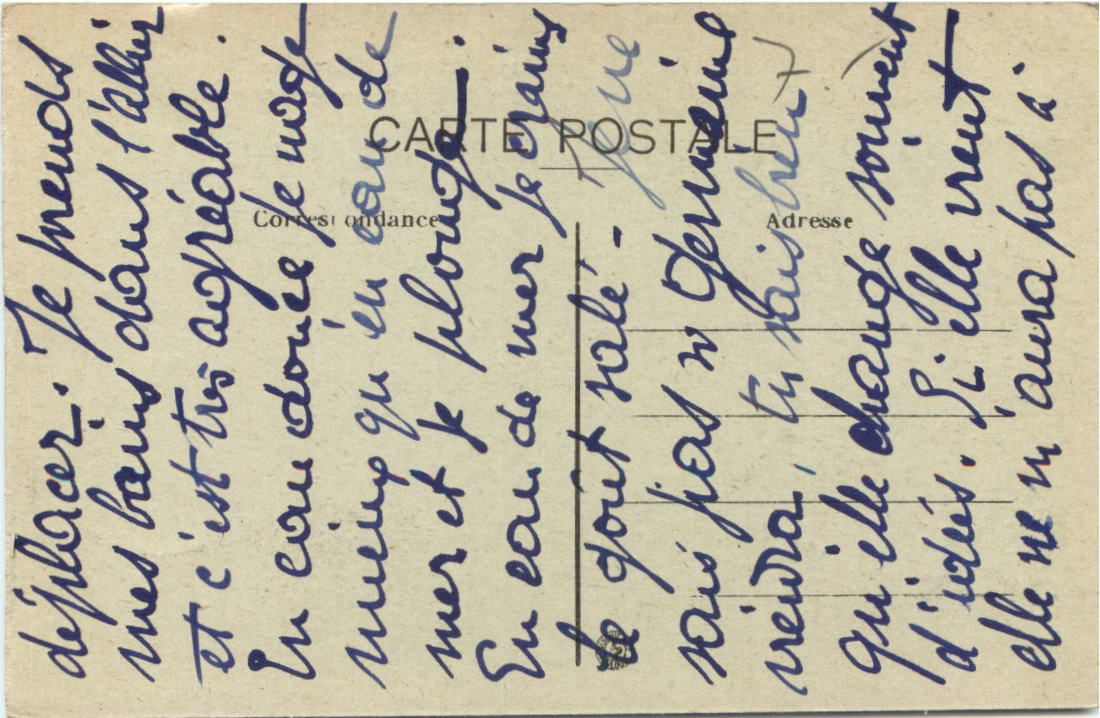 CARTE POSTALE
Correspondance
Adresse
déplacer. Je prends
mes bains dans l'allier
et c'est très agréable.
En eau douce je nage
mieux qu'en eau de
mer et je plonge.
En eau de mer je crains
le goût salé - Je ne
sais pas si Germaine
viendra, tu sais bien
qu'elle change souvent
d'idées. Si elle vient
elle ne m'aura pas à